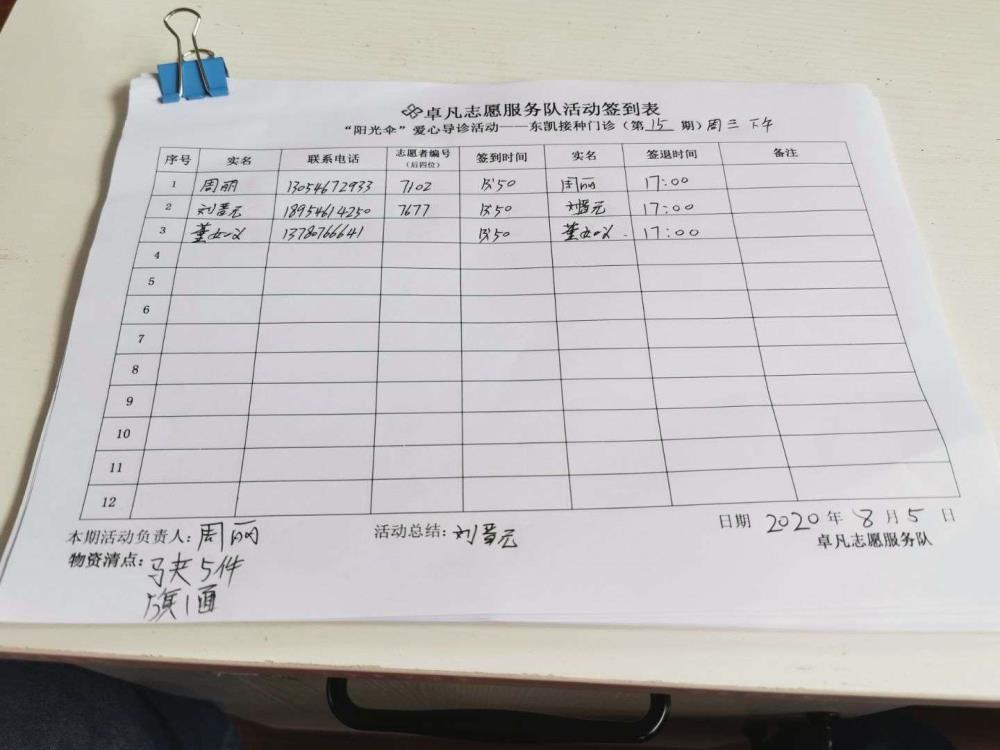 卓凡志愿服务队活动签到表
“阳光伞”爱心导诊活动——东凯接种门诊(第 15 期)周三下午
序号 实名 联系电话 志愿者编号(后四位) 签到时间 实名 签退时间 备注
1 周丽 13054672933 7102 13:50 周丽 17:00
2 刘晋元 18954614250 7677 13:50 刘晋元 17:00
3 董 13780766641 13:50 董 17:00
4
5
6
7
8
9
10
11
12
本期活动负责人:周丽 活动总结:刘晋元 日期 2020 年 8 月 5 日
物资清点:马夹5件 卓凡志愿服务队
旗1面